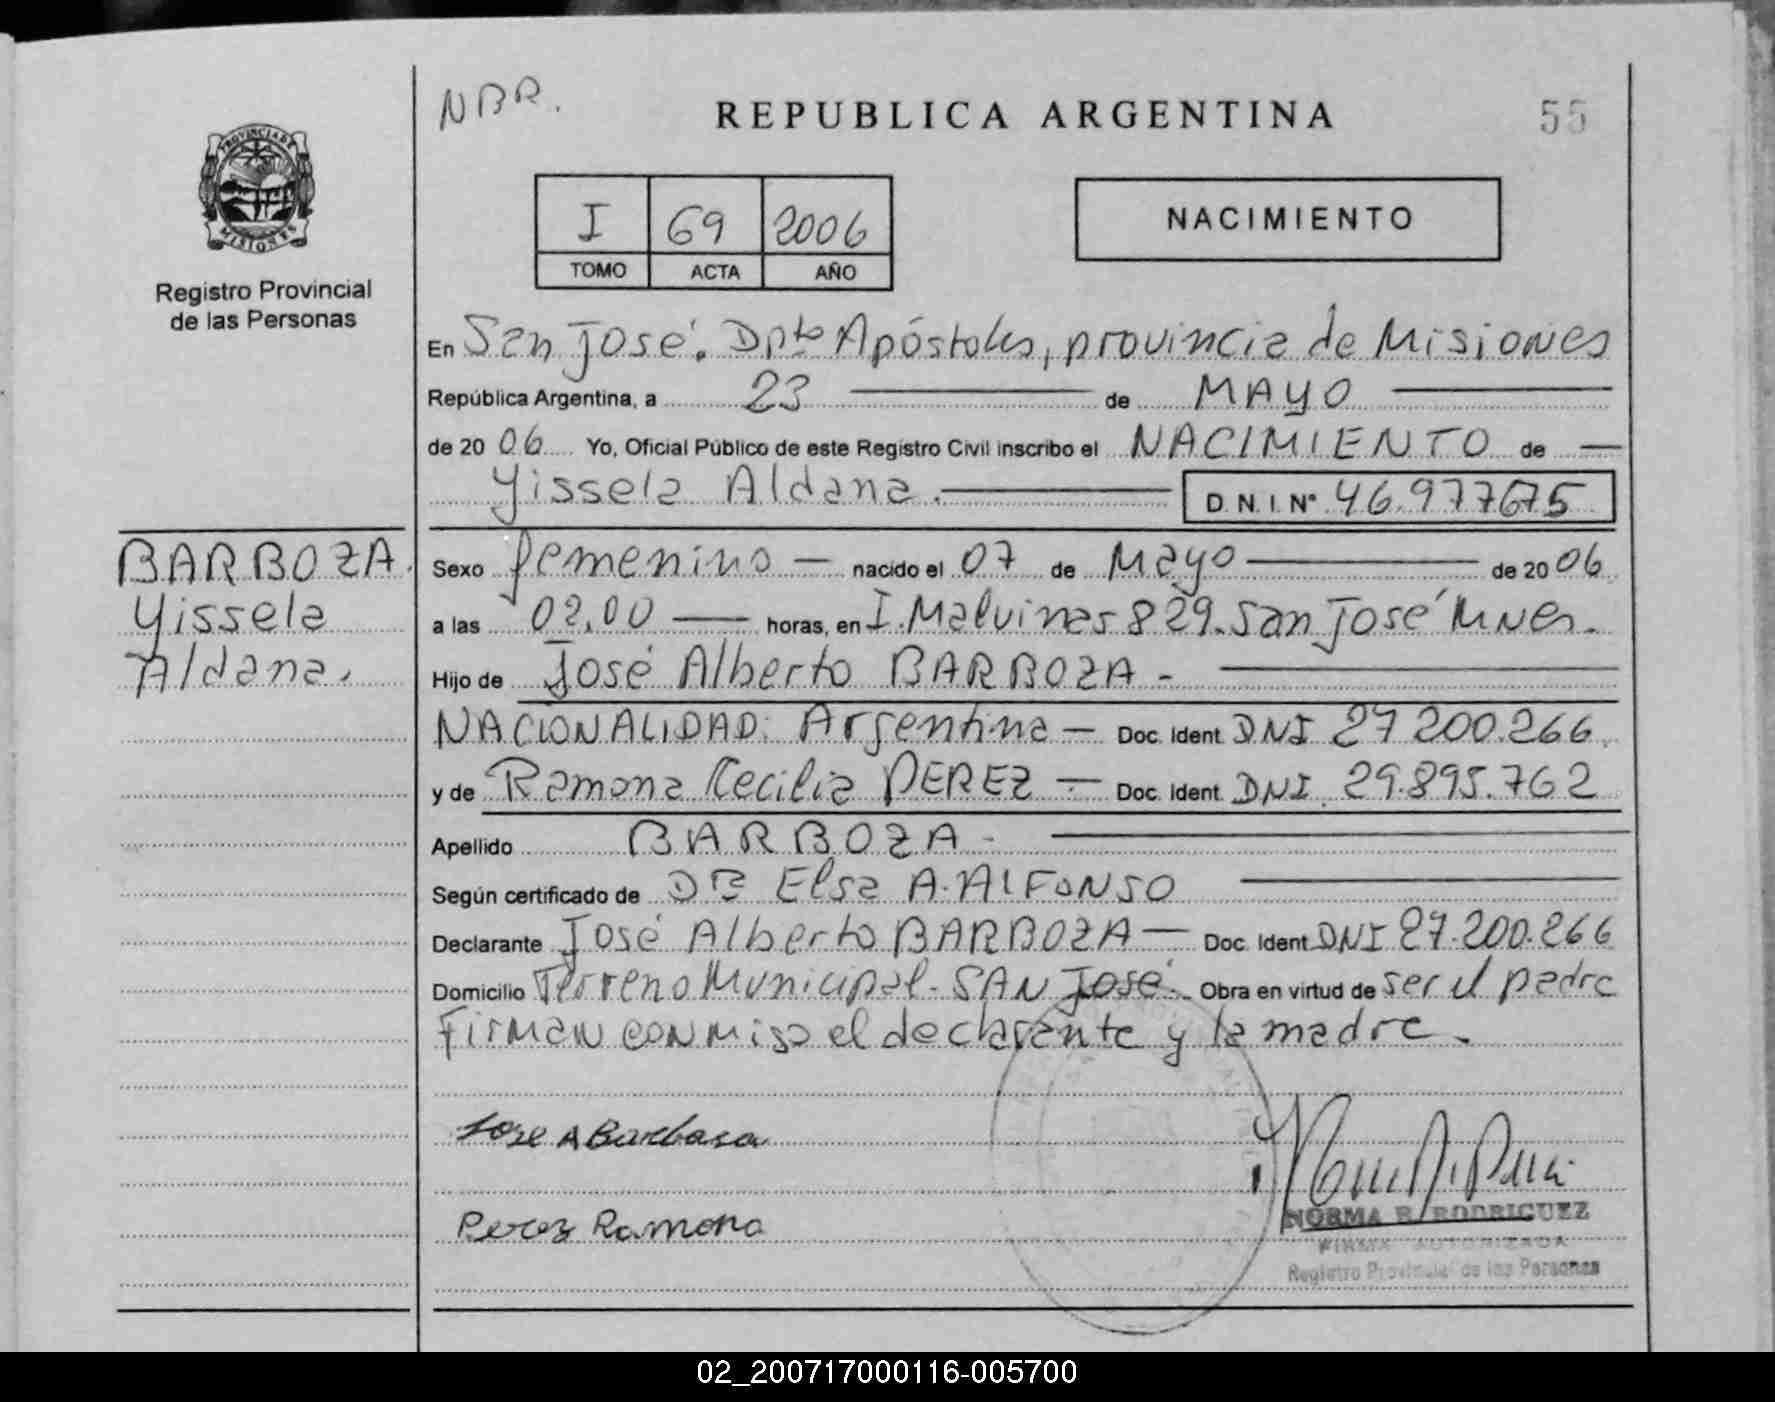 NBR.
REPUBLICA ARGENTINA
55
PROVINCIA DE
MISIONES
Registro Provincial
de las Personas
I 69 2006
TOMO ACTA AÑO
NACIMIENTO
En San José. Dpto Apóstoles, provincia de Misiones
República Argentina, a 23 de MAYO
de 20 06 Yo, Oficial Público de este Registro Civil inscribo el NACIMIENTO de
Yissela Aldana. D.N.I. N° 46.977675
BARBOZA.
Yissela
Aldana.
Sexo femenino nacido el 07 de Mayo de 20 06
a las 02,00 horas, en I. Malvinas 829. San José Mnes.
Hijo de José Alberto BARBOZA -
NACIONALIDAD: Argentina - Doc. Ident. DNI 27 200.266.
y de Ramona Cecilia PEREZ - Doc. Ident. DNI. 29.895.762
Apellido BARBOZA -
Según certificado de Dra Elsa A. ALFONSO
Declarante José Alberto BARBOZA - Doc. Ident DNI 27.200.266
Domicilio Terreno Municipal - SAN José. Obra en virtud de ser el padre
Firman conmigo el declarante y la madre.
Jose A Barboza
Perez Ramona
NORMA B. RODRIGUEZ
FIRMA AUTORIZADA
Registro Provincial de las Personas
02_200717000116-005700